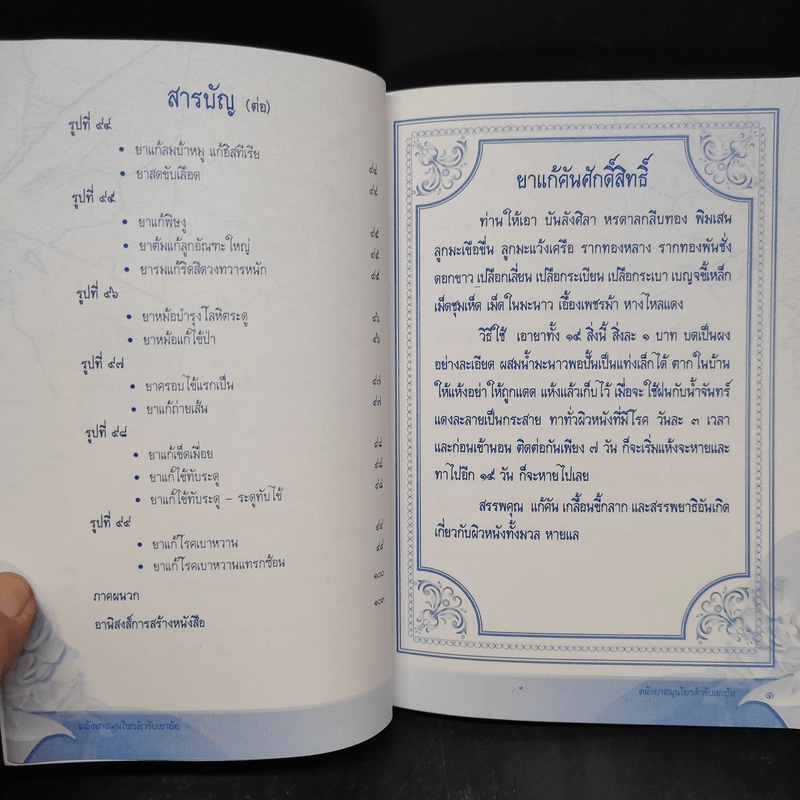 สารบัญ (ต่อ)
รูปที่ ๙๔
• ยาแก้ลมบ้าหมู แก้ฮิสทีเรีย ๙๔
• ยาสตขับเลือด ๙๔
รูปที่ ๙๕
• ยาแก้พิษงู ๙๕
• ยาต้มแก้ลูกอัณฑะใหญ่ ๙๕
• ยารมแก้ริดสีดวงทวารหนัก ๙๕
รูปที่ ๙๖
• ยาหม้อบำรุงโลหิตระดู ๙๖
• ยาหม้อแก้ไข้ป่า ๙๖
รูปที่ ๙๗
• ยาครอบไข้แรกเป็น ๙๗
• ยาแก้ถ่ายเส้น ๙๗
รูปที่ ๙๘
• ยาแก้เข็ดเมื่อย ๙๘
• ยาแก้ไข้ทับระดู ๙๘
• ยาแก้ไข้ทับระดู – ระดูทับไข้ ๙๘
รูปที่ ๙๙
• ยาแก้โรคเบาหวาน ๙๙
• ยาแก้โรคเบาหวานแทรกซ้อน ๙๙
ภาคผนวก ๑๐๐
อานิสงส์การสร้างหนังสือ ๑๐๑
ยาแก้คันศักดิ์สิทธิ์
ท่านให้เอา บันลังศิลา หรดาลกลีบทอง พิมเสน
ลูกมะเขือขื่น ลูกมะแว้งเครือ รากทองหลาง รากทองพันชั่ง
ดอกขาว เปลือกเลี่ยน เปลือกระเบียน เปลือกระเบา เบญจขี้เหล็ก
เม็ดชุมเห็ด เม็ดในมะนาว เอื้องเพชรม้า หางไหลแดง
วิธีใช้ เอายาทั้ง ๑๕ สิ่งนี้ สิ่งละ ๑ บาท บดเป็นผง
อย่างละเอียด ผสมน้ำมะนาวพอปั้นเป็นแท่งเล็กได้ ตากในบ้าน
ให้แห้งอย่าให้ถูกแดด แห้งแล้วเก็บไว้ เมื่อจะใช้ฝนกับน้ำจันทร์
แดงละลายเป็นกระสาย ทาทั่วผิวหนังที่มีโรค วันละ ๓ เวลา
และก่อนเข้านอน ติดต่อกันเพียง ๗ วัน ก็จะเริ่มแห้งจะหายและ
ทาไปอีก ๑๕ วัน ก็จะหายไปเลย
สรรพคุณ แก้คัน เกลื้อนขี้กลาก และสรรพยาธิอันเกิด
เกี่ยวกับผิวหนังทั้งมวล หายแล
คลังยาสมุนไพรตำรับเขาอ้อ
คลังยาสมุนไพรตำรับเขาอ้อ ๑